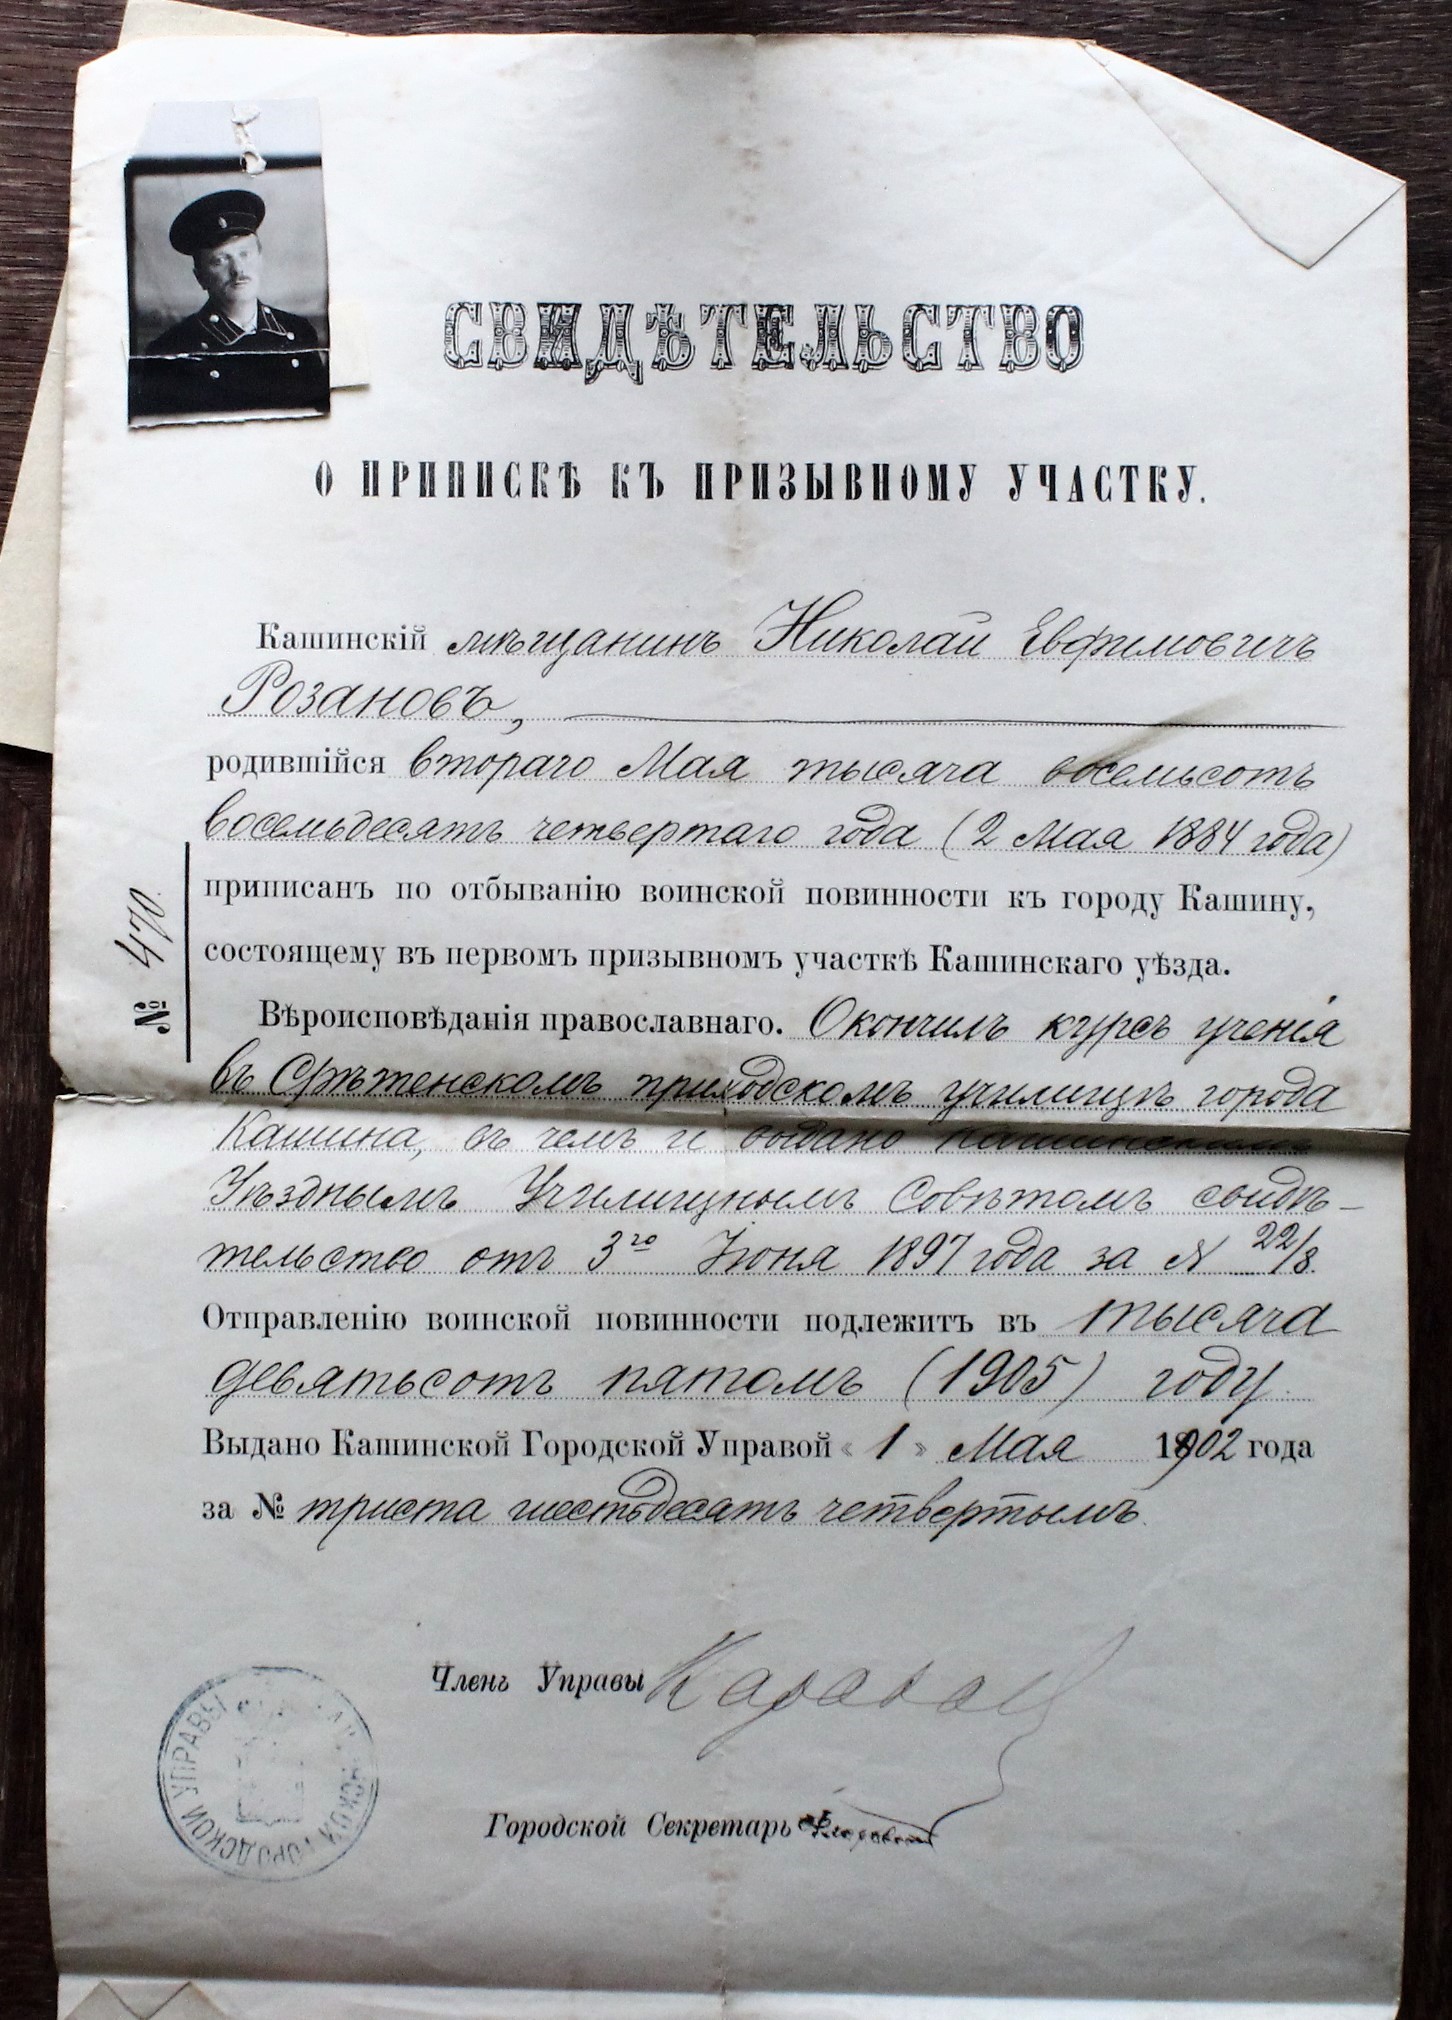 СВИДѢТЕЛЬСТВО
О ПРИПИСКѢ КЪ ПРИЗЫВНОМУ УЧАСТКУ.
Кашинскій мѣщанинъ Николай Евфимовичъ
Розановъ,
родившійся втораго Мая тысяча восемьсотъ
восемьдесятъ четвертаго года (2 Мая 1884 года)
приписанъ по отбыванію воинской повинности къ городу Кашину,
состоящему въ первомъ призывномъ участкѣ Кашинскаго уѣзда.
№ 470.
Вѣроисповѣданія православнаго. Окончилъ курсъ ученія
въ Срѣтенскомъ приходскомъ училищѣ города
Кашина, въ чемъ и выдано Кашинскимъ
Уѣзднымъ Училищнымъ Совѣтомъ свидѣ-
тельство отъ 3го Іюня 1897 года за № 22/8.
Отправленію воинской повинности подлежитъ въ тысяча
девятьсотъ пятомъ (1905) году.
Выдано Кашинской Городской Управой «1» Мая 1902 года
за № триста шестьдесятъ четвертымъ.
Членъ Управы
Городской Секретарь
ГОРОДСКОЙ УПРАВЫ